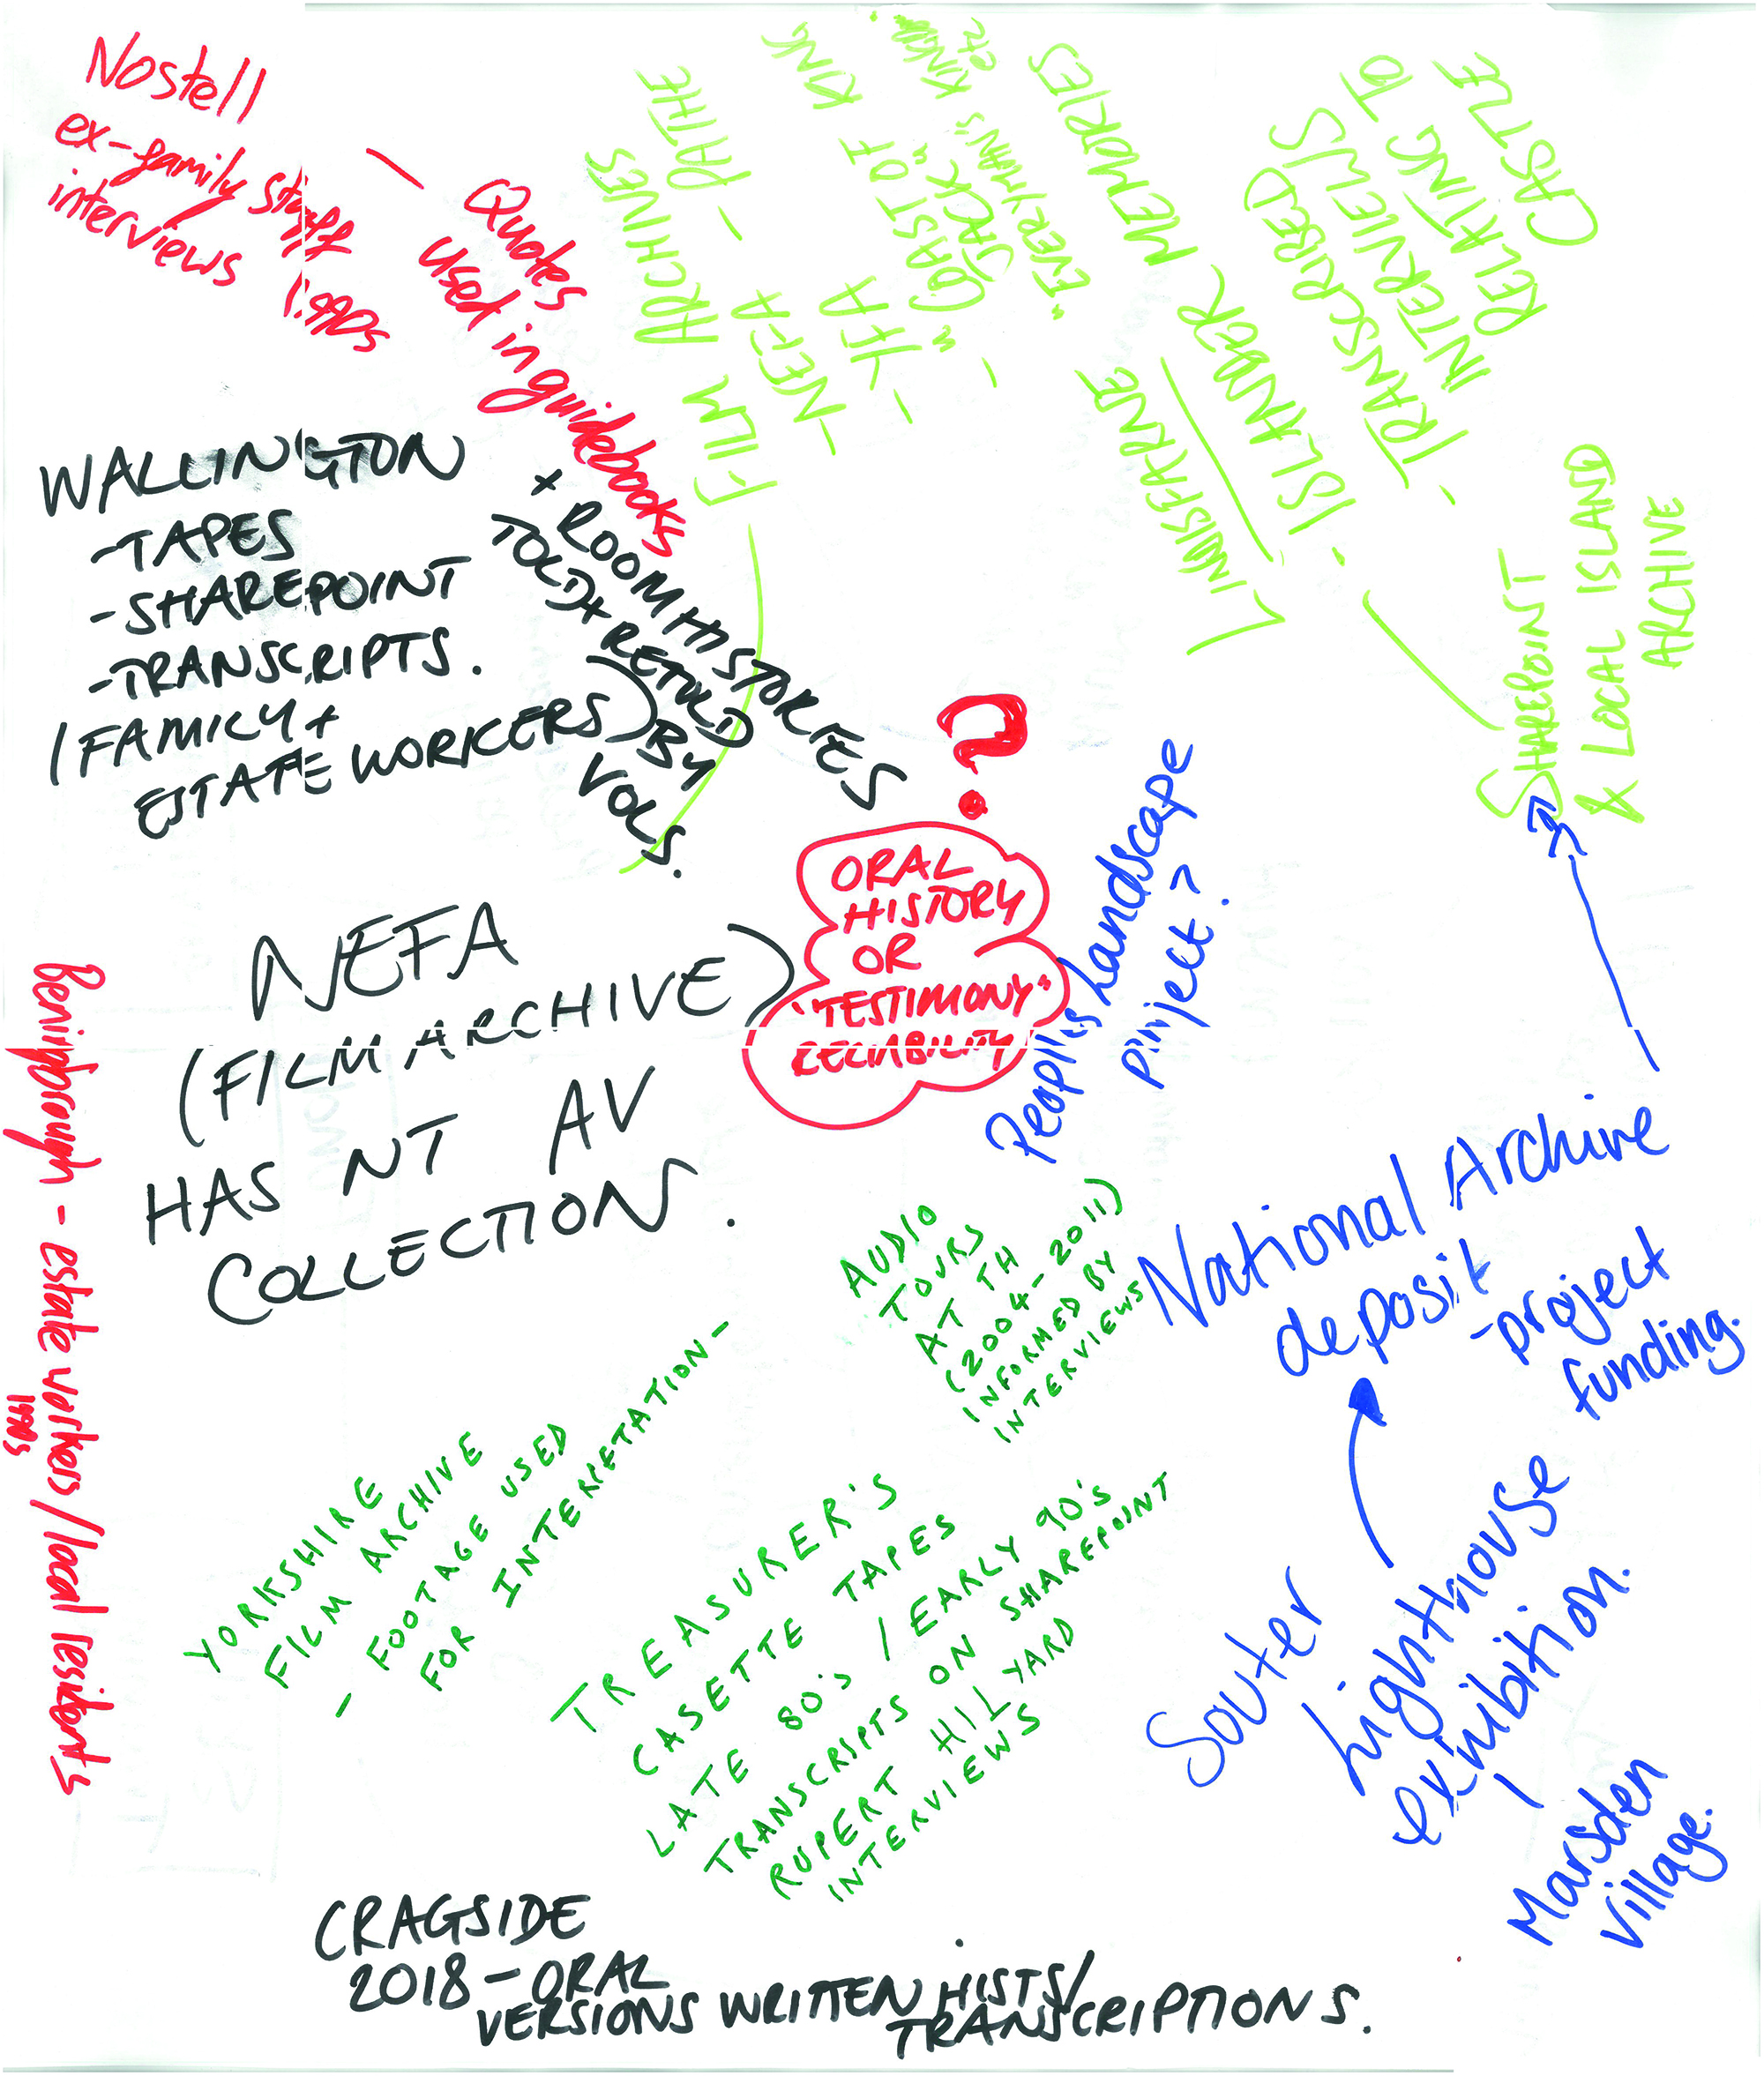 Nostell
ex-family stuff
interviews 1990s
— Quotes
used in guidebooks
+ ROOM HISTORIES
TOLD + RETOLD
BY
VOLS.
WALLINGTON
-TAPES
-SHAREPOINT
-TRANSCRIPTS.
(FAMILY +
ESTATE WORKERS)
FILM ARCHIVES
- NEFA - PATHE
- YFA
- "COAST OF KING
JACK"
"EVERYMAN'S KINGDOM"
etc
LINDISFARNE
- ISLANDER MEMORIES
- TRANSCRIBED
INTERVIEWS
RELATING TO
CASTLE
SHAREPOINT
& LOCAL ISLAND
ARCHIVE
?
ORAL
HISTORY
OR
"TESTIMONY"
RELIABILITY
Peoples Landscape
project?
NEFA
(FILM ARCHIVE)
HAS NT AV
COLLECTION.
Beningbrough - estate workers/local residents
1990s
National Archive
deposit
-project
funding.
AUDIO
TOURS
AT TH
(2004-2011)
INFORMED BY
INTERVIEWS
YORKSHIRE
FILM ARCHIVE
- FOOTAGE USED
FOR INTERRETATION-
TREASURER'S
CASETTE TAPES
LATE 80's / EARLY 90's
TRANSCRIPTS ON SHAREPOINT
RUPERT HILYARD
INTERVIEWS
Souter
Lighthouse
exhibition.
Marsden
village.
CRAGSIDE
2018 - ORAL
VERSIONS WRITTEN HISTS/
TRANSCRIPTIONS.